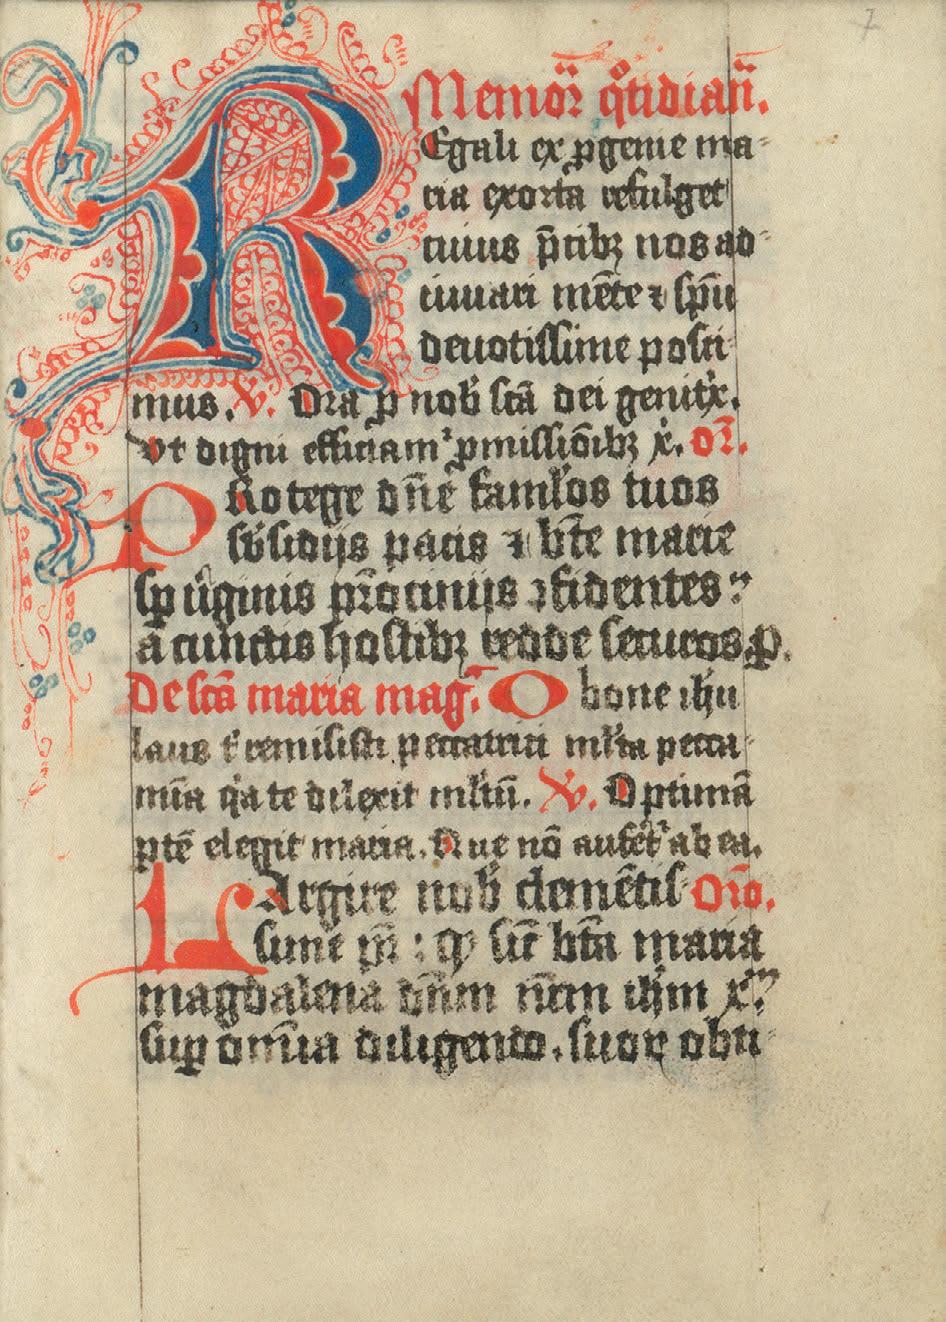 7
Memor̄ qͦtidian̄.
REgali ex ꝓgenie ma-
ria exorta refulget
cuius p̄cibꝫ nos ad-
iuuari mēte ⁊ sp̄u
deuotissime posci-
mus. V. Ora ꝓ nob̄ scā dei genitͥx.
Vt digni efficiamᷣ ꝓmissiōibꝫ x̄. Or̄.
PRotege dn̄e famĺos tuos
sb̄sidijs pacis ⁊ bt̄e marie
sꝑ uͥginis pr̄ocinijs ꝯfidentes
a cunctis hostibꝫ redde securos. ꝑ.
De scā maria mag. O bone ihu
laus t̄ remisisti peccatrici ml̄ta pecca-
mīa qͥa te dilexit ml̄tū. V. Optimā
ꝑtē elegit maria. Que nō auferetᷣ ab ea.
LArgire nob̄ clemētis- Or̄o.
sime pr̄ : qͥ sic̄ bt̄a maria
magdalena dn̄m nr̄m ihm xͫ
suꝑ om̄ia diligendo. suoꝝ obti-